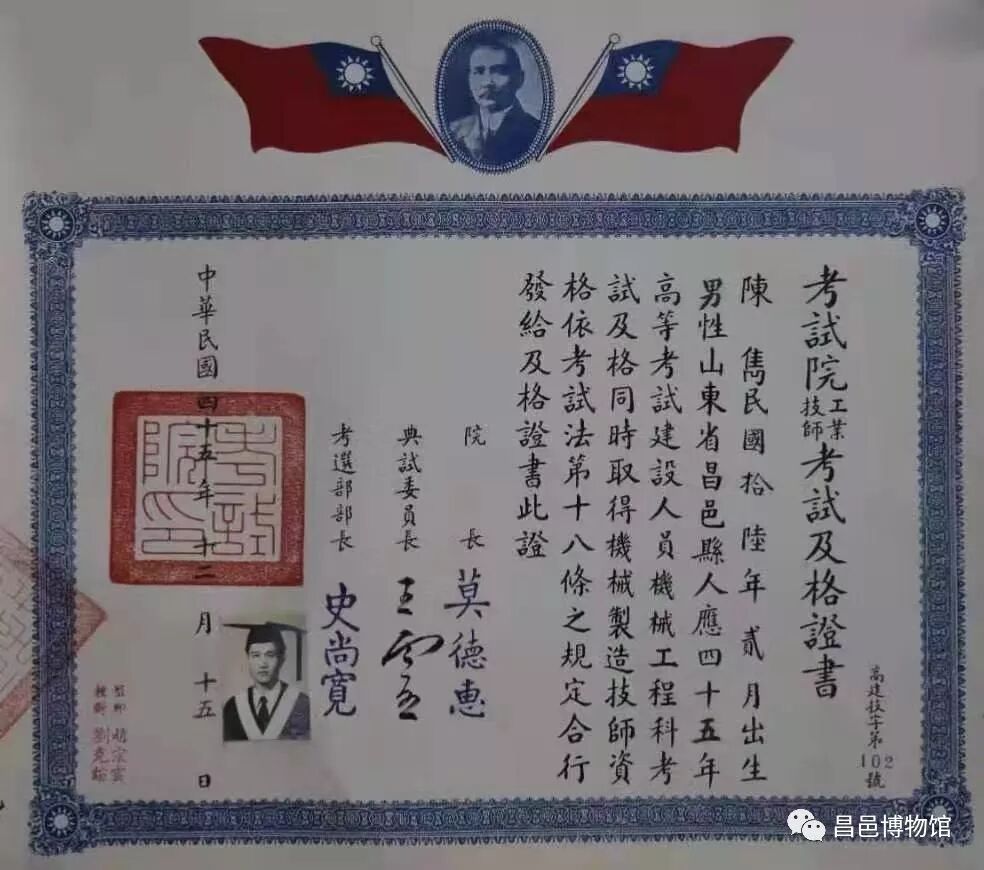 考試院工業技師考試及格證書
高建技字第102號
陳 雋民國拾陸年貳月出生
男性山東省昌邑縣人應四十五年
高等考試建設人員機械工程科考
試及格同時取得機械製造技師資
格依考試法第十八條之規定合行
發給及格證書此證
院長 莫德惠
典試委員長 王雲五
考選部部長 史尚寬
中華民國四十五年十二月十五日
考試院印
昌邑博物馆